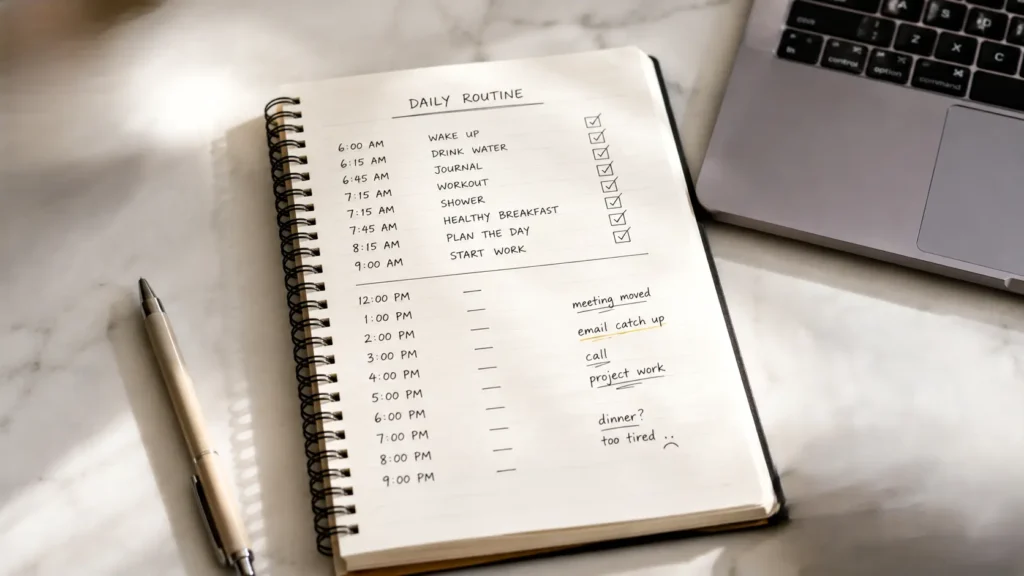 DAILY ROUTINE
6:00 AM WAKE UP
6:15 AM DRINK WATER
6:45 AM JOURNAL
7:15 AM WORKOUT
7:15 AM SHOWER
7:45 AM HEALTHY BREAKFAST
8:15 AM PLAN THE DAY
9:00 AM START WORK
12:00 PM — meeting moved
1:00 PM — email catch up
2:00 PM — call
3:00 PM — project work
4:00 PM —
5:00 PM — dinner?
6:00 PM — too tired :(
7:00 PM —
8:00 PM —
9:00 PM —
A S D
Z X C
fn control option command